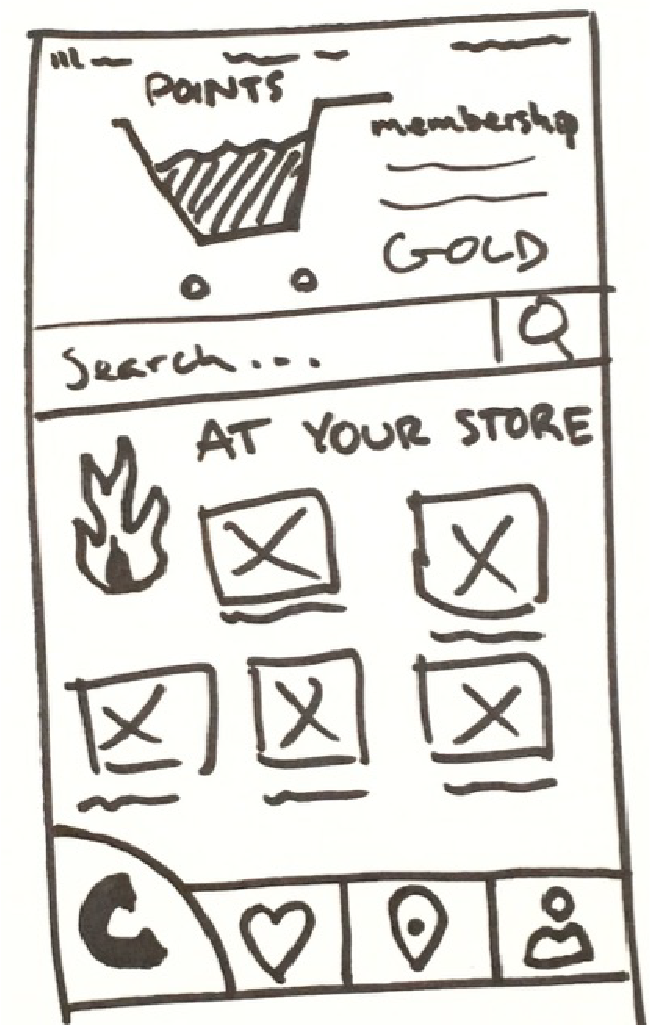 POINTS
membership
GOLD
Search...
AT YOUR STORE